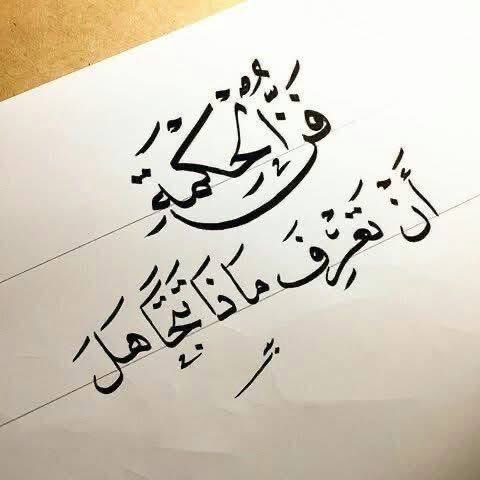 فن الحكمة
أن تعرف ماذا تتجاهل